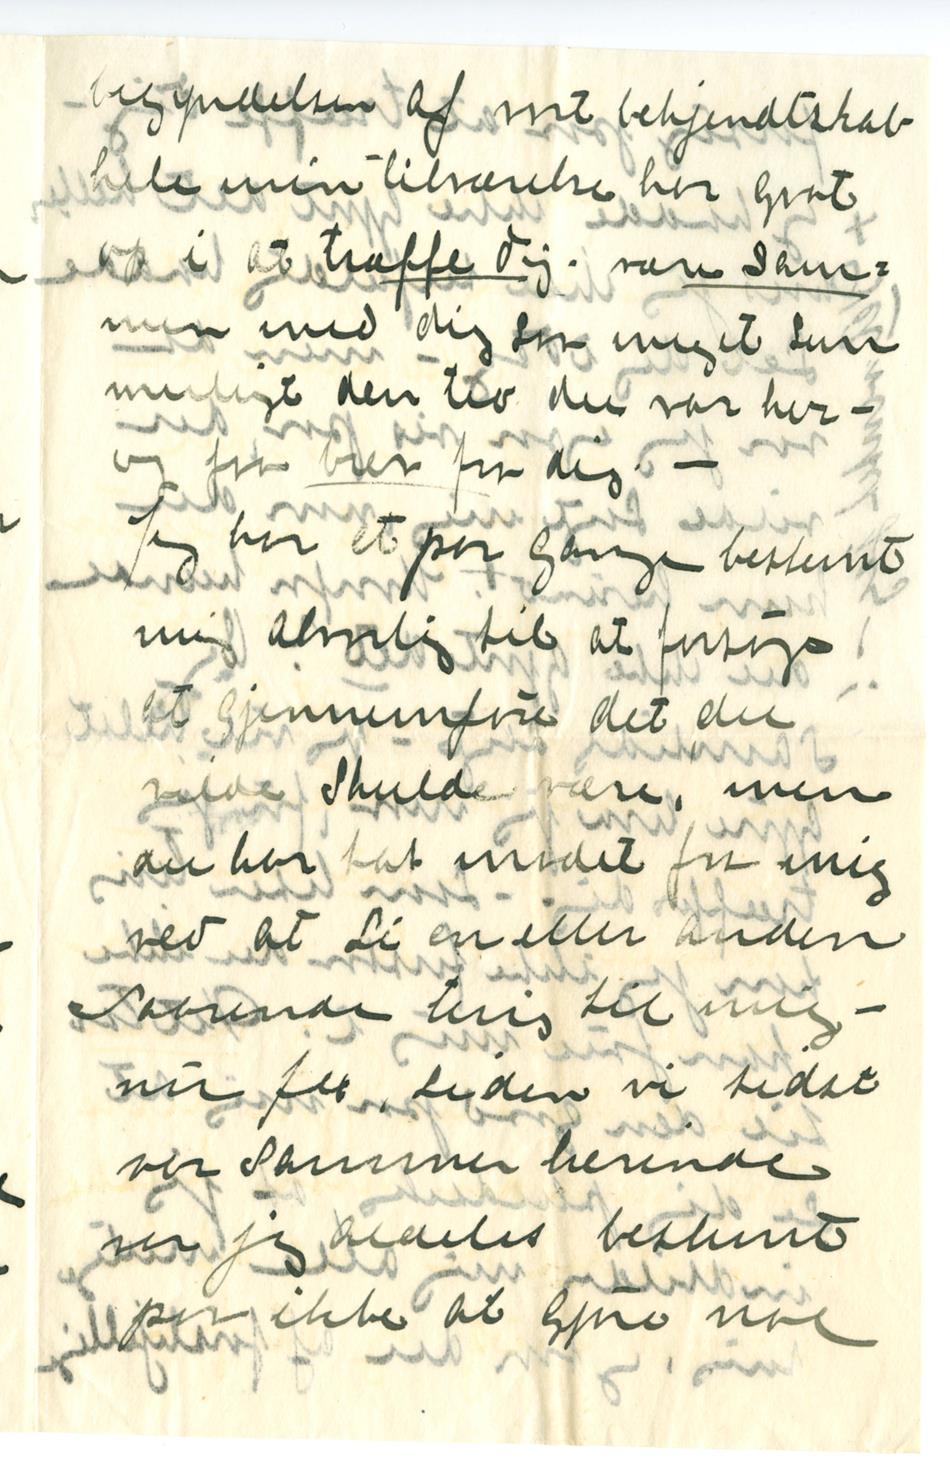 begyndelsen af vort bekjendtskab
hele min tilværelse har gaat
op i at træffe dig. være sam=
men med dig saa meget som
muligt den tid du var her –
og faa brev fra dig. –
Jeg har et par gange bestemt
mig alvorlig til at forsøge
at gjennemføre det du
vilde skulde være, men
du har tat modet fra mig
ved at si en eller anden
saarende ting til mig –
nu f.ex. siden vi sidst
var sammen herinde
var jeg aldeles bestemt
paa ikke at gjøre noe